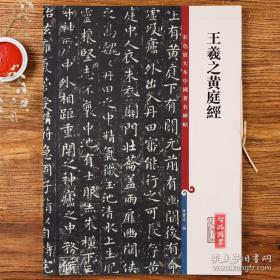 王羲之黄庭經
彩色放大本中國著名碑帖
孫寶文 編
上有黄庭下有關元前有幽闕後有命
門噓吸廬外出入丹田審能行之可長存黄
庭中人衣朱衣關門壯籥蓋兩扉幽闕
俠之高魏魏丹田之中精氣微玉池清水上生肥
靈根堅志不衰中池有士服赤朱横下三
寸神所居中外相距重閉之神廬之中務脩